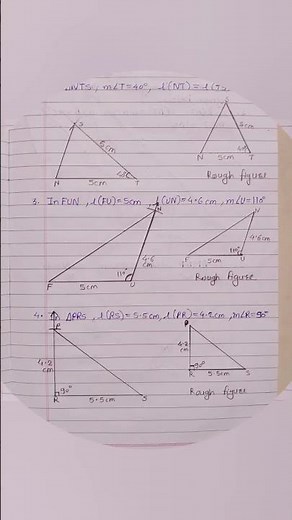 NTS, m∠T=40°, l(NT)=l(TS
S
S
5cm
5cm
40°
N 5cm T
N 5cm T
Rough figure
3. In FUN, l(FU)=5cm l(UN)=4.6cm, m∠U=110°
N
N
4.6
cm
4.6cm
110°
110°
F 5cm U
F U
Rough figure
4. ΔPRS, l(RS)=5.5cm, l(PR)=4.2cm, m∠R=90°
P
P
4.2
cm
4.2
cm
90°
90°
R 5.5cm S
R 5.5cm S
Rough figure